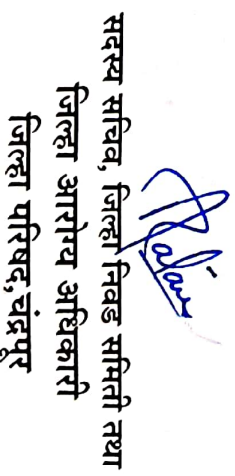 सदस्य सचिव, जिल्हा निवड समिती तथा
जिल्हा आरोग्य अधिकारी
जिल्हा परिषद,चंद्रपूर